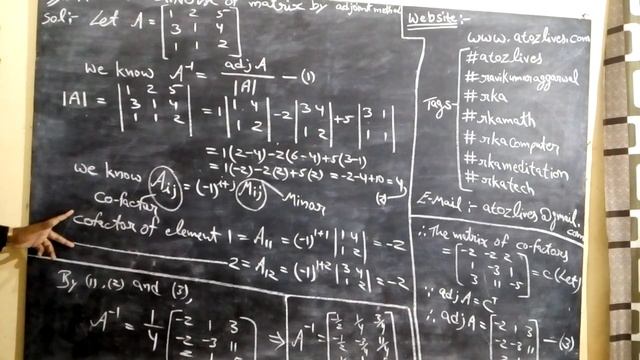 of matrix by adjoint method
Sol:- Let A = [1 2 5
3 1 4
1 1 2]
we know A⁻¹ = adj A / |A| — (1)
|A| = |1 2 5; 3 1 4; 1 1 2| = 1 |1 4; 1 2| -2 |3 4; 1 2| +5 |3 1; 1 1|
= 1(2-4)-2(6-4)+5(3-1)
= 1(-2)-2(2)+5(2) = -2-4+10 = 4
(2)
we know Aij = (-1)^(i+j) Mij
Co-factor Minor
cofactor of element 1 = A₁₁ = (-1)¹⁺¹ |1 4; 1 2| = -2
2 = A₁₂ = (-1)¹⁺² |3 4; 1 2| = -2
By (1), (2) and (3),
A⁻¹ = 1/4 [-2 1 3
-2 -3 11
⇒ A⁻¹ = [-1/2 1/4 3/4
-1/2 -3/4 11/4
Website:-
www.atozlives.com
Tags-
#atozlives
#ravikumaraggarwal
#rka
#rkamath
#rkacomputer
#rkameditation
#rkatech
E-Mail :- atozlives@gmail.com
∴ The matrix of co-factors
= [-2 -2 2
1 -3 1
3 11 -5] = C (Let)
∵ adj A = Cᵀ
∴ adj A = [-2 1 3
-2 -3 11
— (3)